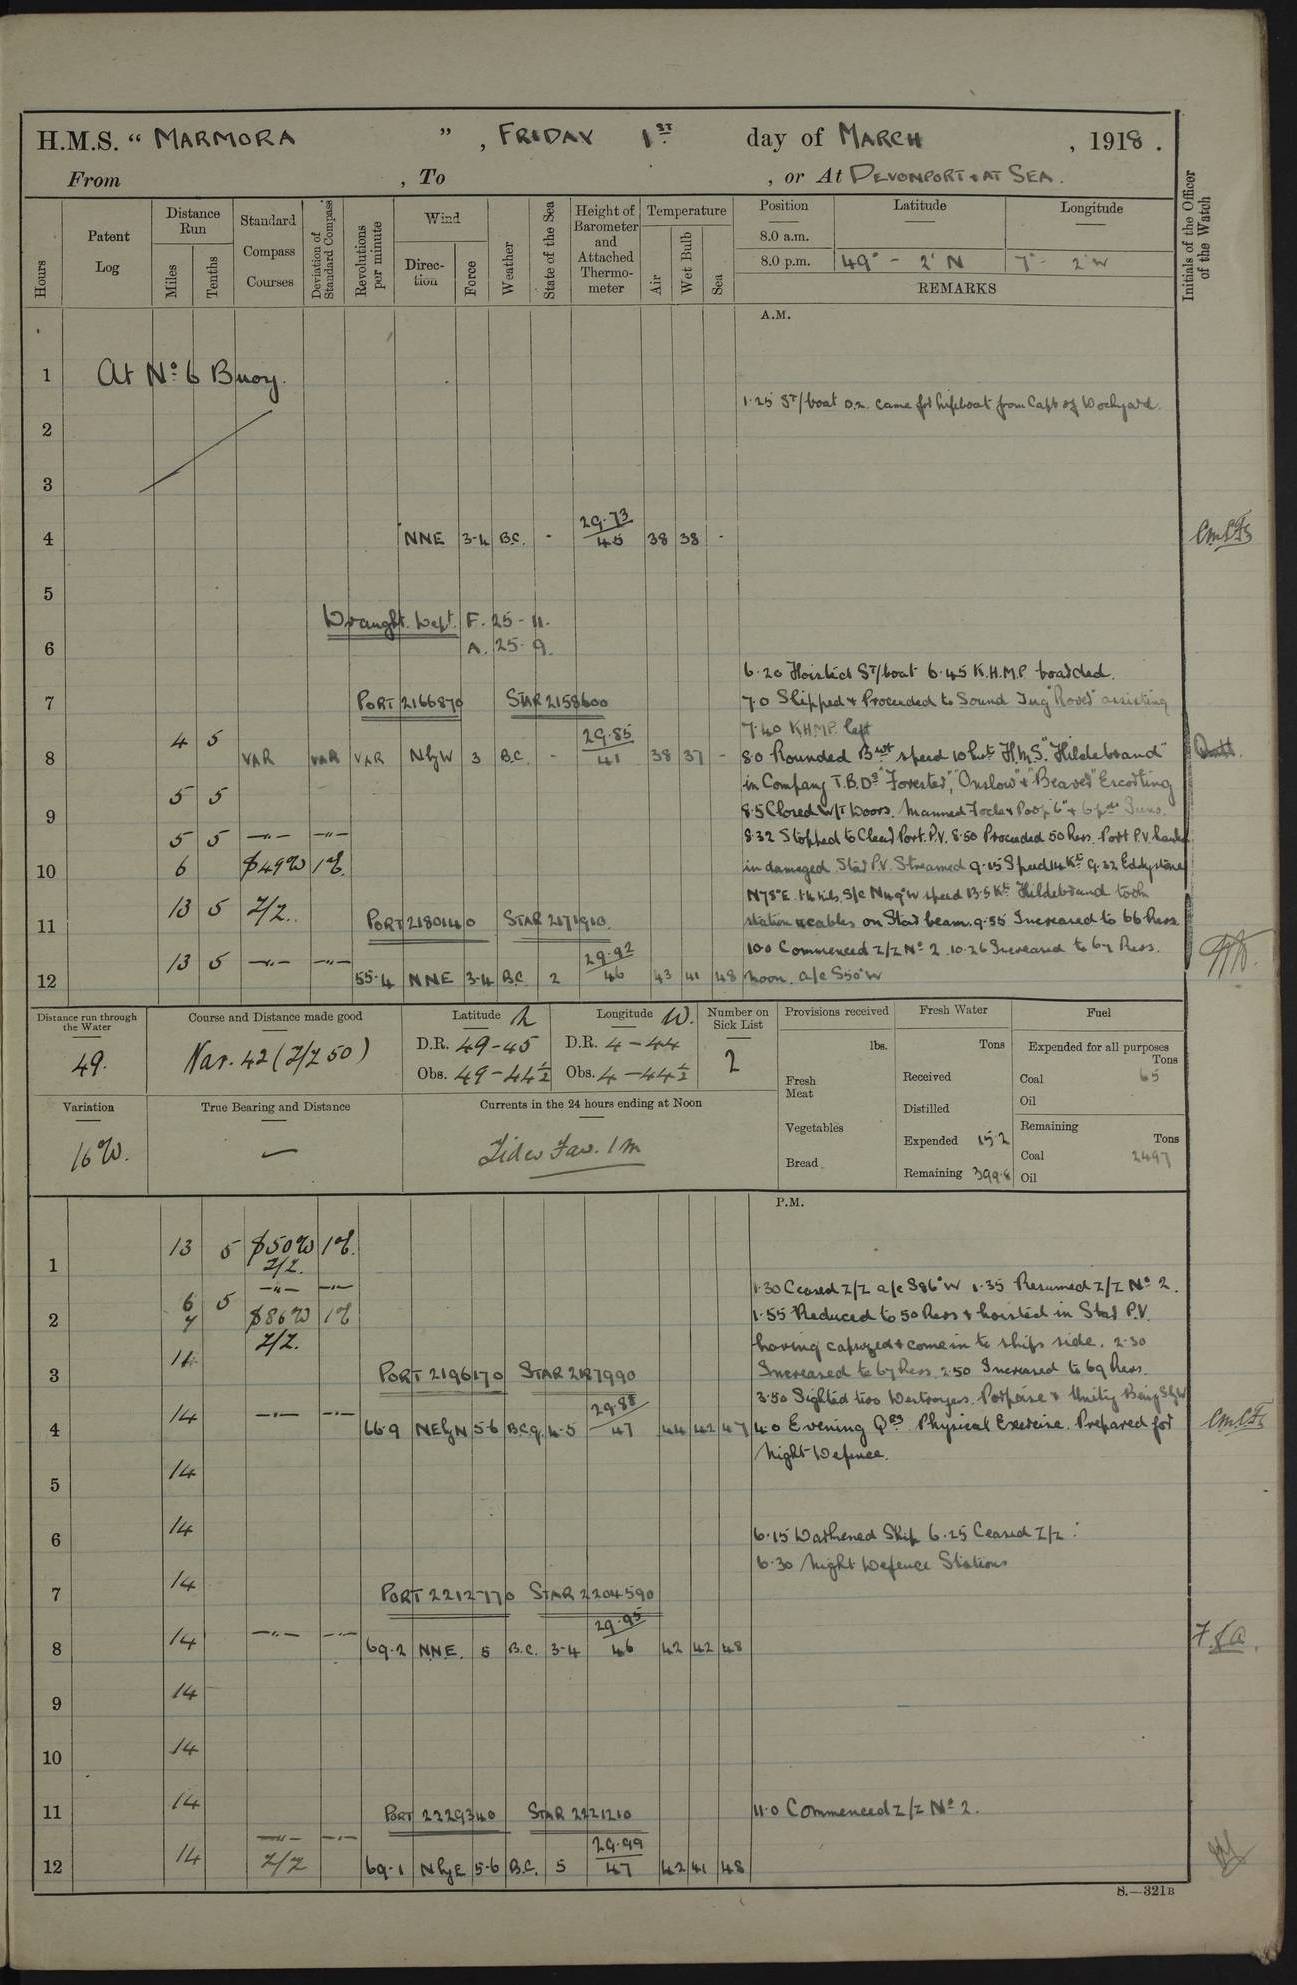 H.M.S. “ MARMORA ” , FRIDAY 1ST day of MARCH , 1918 .
From , To , or At DEVONPORT & AT SEA.
Hours
Patent Log
Distance Run
Miles
Tenths
Standard Compass Courses
Deviation of Standard Compass
Revolutions per minute
Wind
Direction
Force
Weather
State of the Sea
Height of Barometer and Attached Thermometer
Temperature
Air
Wet Bulb
Sea
Position Latitude Longitude
8.0 a.m.
8.0 p.m. 49° - 2' N 7° - 2' W
REMARKS
Initials of the Officer of the Watch
A.M.
1 At No. 6 Buoy.
1.25 St/boat came for lifeboat from Capt of Dockyard.
2
3
4 NNE 3-4 B.C. - 29.73 / 45 38 38 -
5
Draught. Dept. F. 25 - 11.
6 A. 25 - 9.
6.20 Hoisted St/boat 6.45 K.H.M.P boarded.
7 PORT 2166870 STAR 2158600
7.0 Slipped & Proceeded to Sound Tug "Rover" assisting
7.40 KHMP. left
8 4 5 VAR VAR VAR NbyW 3 B.C. - 29.85 / 41 38 37 -
8.0 Rounded Bwr speed 10 knts H.M.S. "Hildebrand"
in Company T.B.Ds "Forester", "Onslow" & "Beaver" Escorting
9 5 5
8.5 Closed W/T Doors. Manned Focle & Poop 6" & 6 pdr Guns.
5 5 -"- -"-
8.32 Stopped to Clear Port. P.V. 8.50 Proceeded 50 Revs. Port P.V. hauled
10 6 S49W 1°E.
in damaged. Star P.V. Streamed 9.15 Speed 14 Kts 9.32 Eddystone
N78°E. 1.4 mls. S/c N49°W speed 13.5 Kts Hildebrand took
11 13 5 Z/Z. PORT 2180140 STAR 2171910.
station 4 cables on Star beam. 9.55 Increased to 66 Revs.
10.0 Commenced Z/Z No 2. 10.26 Increased to 67 Revs.
12 13 5 -"- -"- 55.4 NNE 3-4 B.C. 2 29.92 / 46 43 41 48 Noon. a/c S50°W
Distance run through the Water
49.
Course and Distance made good
Var. 42 (Z/Z 50)
Latitude N
D.R. 49-45
Obs. 49-44½
Longitude W.
D.R. 4-44
Obs. 4-44½
Number on Sick List
2
Provisions received
lbs.
Fresh Meat
Vegetables
Bread
Fresh Water
Tons
Received
Distilled
Expended 15.2
Remaining 399.8
Fuel
Expended for all purposes
Tons
Coal 65
Oil
Remaining
Tons
Coal 2497
Oil
Variation
16°W.
True Bearing and Distance
—
Currents in the 24 hours ending at Noon
Tides Fav. 1m
P.M.
1 13 5 S50W Z/Z. 1°E.
-"- -"-
1.30 Ceased Z/Z a/c S86°W 1.35 Resumed Z/Z No 2.
2 6 5
7 S86W Z/Z. 1°E
1.55 Reduced to 50 Revs & hoisted in Star P.V.
having capsized & come in to ships side. 2.30
3 14 PORT 2196170 STAR 2187990
Increased to 67 Revs. 2.50 Increased to 69 Revs.
3.50 Sighted two Destroyers. Porpoise & Unity Bearg SbyW
4 14 -"- -"- 66.9 NEbyN 5-6 B.C.q. 4-5 29.88 / 47 44 42 47
4.0 Evening Qrs. Physical Exercise. Prepared for
Night Defence.
5 14
6 14
6.15 Darkened Ship 6.25 Ceased Z/Z.
6.30 Night Defence Stations
7 14 PORT 2212770 STAR 2204590
8 14 -"- -"- 69.2 NNE. 5 B.C. 3-4 29.95 / 46 42 42 48
9 14
10 14
11 14 PORT 2229340 STAR 2221210
11.0 Commenced Z/Z No 2.
12 14 -"- Z/Z -"- 69.1 NbyE 5-6 B.C. 5 29.99 / 47 42 41 48
S.—321B